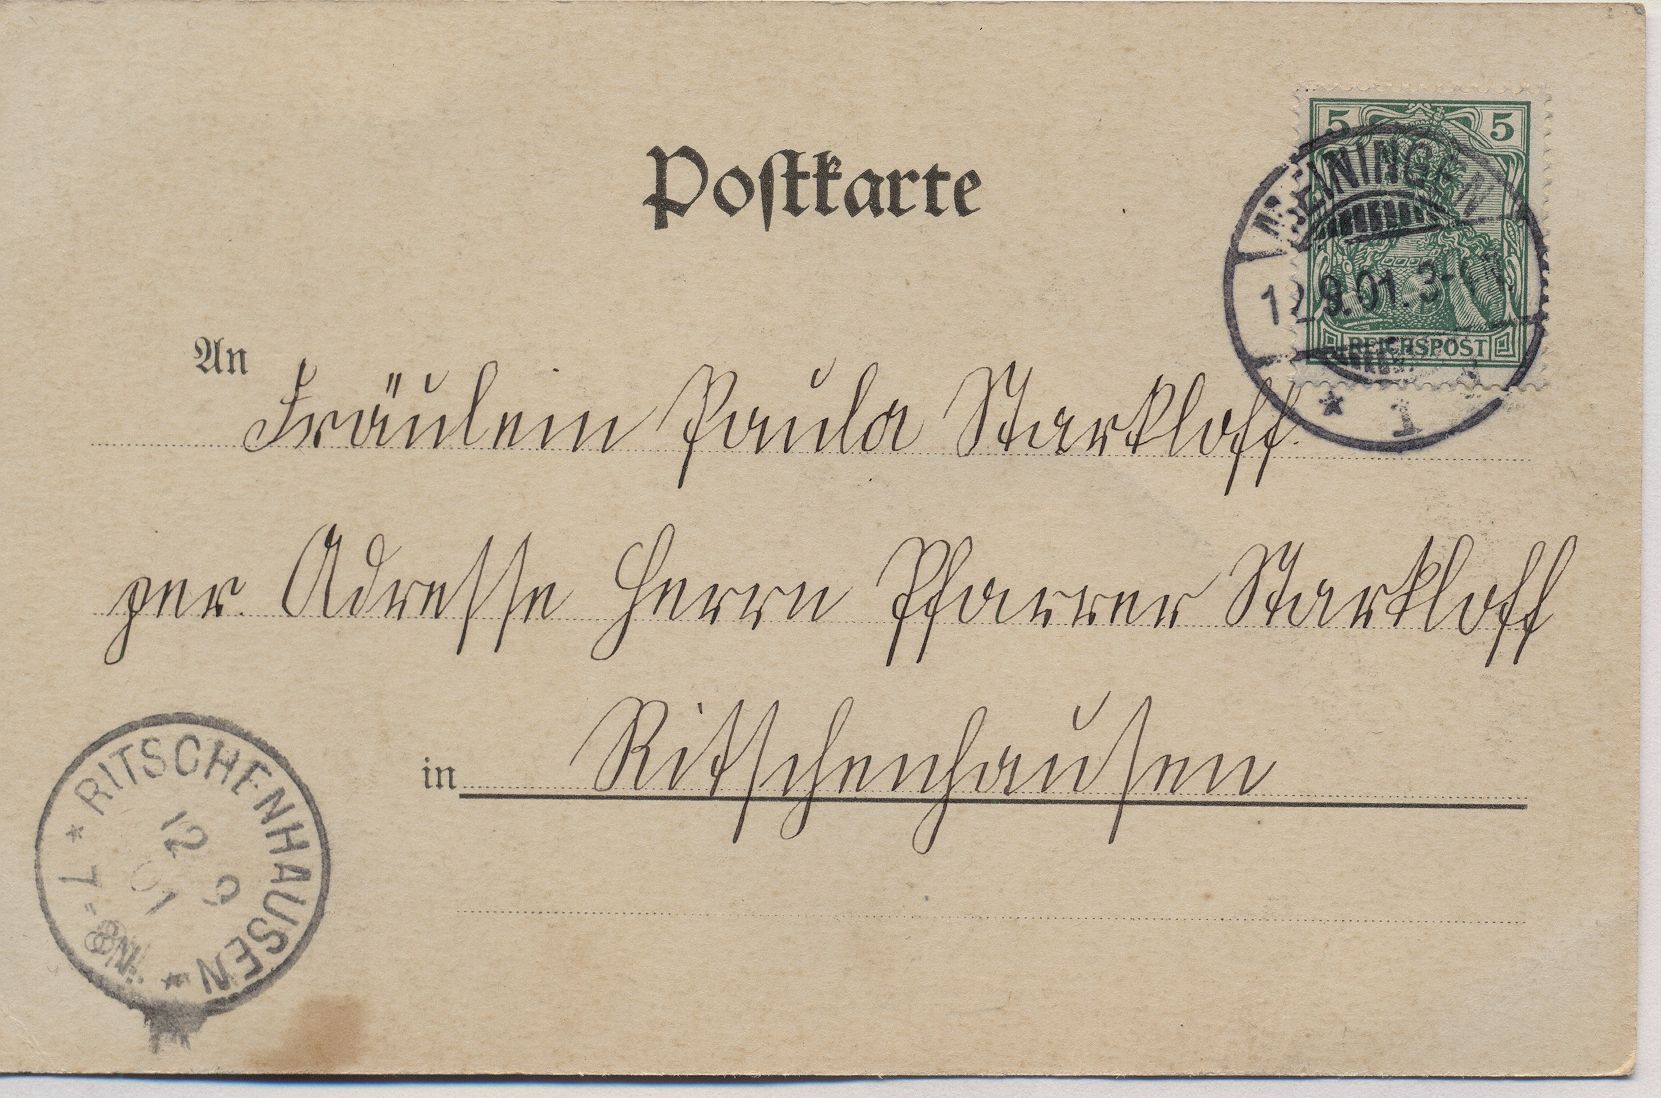 Postkarte
5 5
MEININGEN
12.9.01. 3-4N
REICHSPOST
* 1
An
Fräulein Paula Starkloff.
per. Adresse Herrn Pfarrer Starkloff
in Ritschenhausen
* RITSCHENHAUSEN *
12 9
01
7-8N.